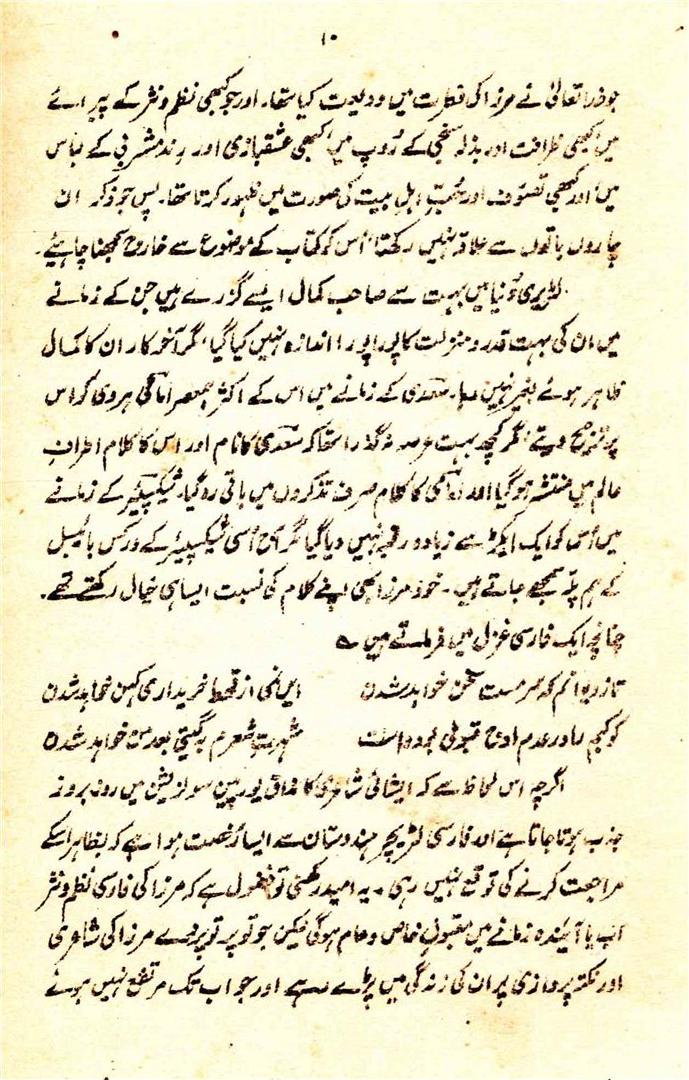 ۱۰
جو خدا تعالیٰ نے مرزا کی فطرت میں ودیعت کیا تھا۔ اور جو کبھی نظم و نثر کے پیرائے
میں، کبھی ظرافت اور بذلہ سنجی کے روپ میں، کبھی عشقبازی اور رندمشربی کے لباس
میں، اور کبھی تصوّف اور حُبِّ اہلِ بیت کی صورت میں ظہور کرتا تھا۔ پس جو ذکر ان
چاروں باتوں سے علاقہ نہیں رکھتا، اُس کو کتاب کے موضوع سے خارج سمجھنا چاہیئے۔
لٹریری دُنیا میں بہت سے صاحب کمال ایسے گزرے ہیں جن کے زمانے
میں ان کی بہت قدر و منزلت کا پورا پورا اندازہ نہیں کیا گیا، مگر آخر کار ان کا کمال
ظاہر ہوئے بغیر نہیں رہا۔ سعدی کے زمانے میں اس کے اکثر ہمعصر امامی ہروی کو اس
پر ترجیح دیتے، مگر کچھ بہت عرصہ نہ گذرا تھا کہ سعدی کا نام اور اس کا کلام اطرافِ
عالم میں منتشر ہو گیا اور امامی کا کلام صرف تذکروں میں باقی رہ گیا۔ شیکسپیئر کے زمانے
میں اُس کو ایک ایکٹر سے زیادہ رتبہ نہیں دیا گیا مگر آج اُسی شیکسپیئر کے ورکس بائیبل
کے ہم پلّہ سمجھے جاتے ہیں۔ خود مرزا بھی اپنے کلام کی نسبت ایسا ہی خیال رکھتے تھے۔
چنانچہ ایک فارسی غزل میں فرماتے ہیں ؎
تا ز دیوانم کہ سرمست سخن خواہد شدن ایں مَی از قحط خریداری کہن خواہد شدن
کوکبم را در عدم اوج قبولی بودہ است شہرت شعرم بہ گیتی بعد من خواہد شدن
اگرچہ اس لحاظ سے کہ ایشائی شاعری کا مذاق یورپین سولزیشن میں روز بروز
جذب ہوتا جاتا ہے اور فارسی لٹریچر ہندوستان سے ایسا رخصت ہوا ہے کہ بظاہر اسکے
مراجعت کرنے کی توقع نہیں رہی۔ یہ امید رکھنی تو فضول ہے کہ مرزا کی فارسی نظم و نثر
اب یا آیندہ زمانے میں مقبول خاص و عام ہوگی لیکن جو تو پر تو پردے مرزا کی شاعری
اور نکتہ پردازی پر ان کی زندگی میں پڑے رہے اور جو اب تک مرتفع نہیں ہوئے